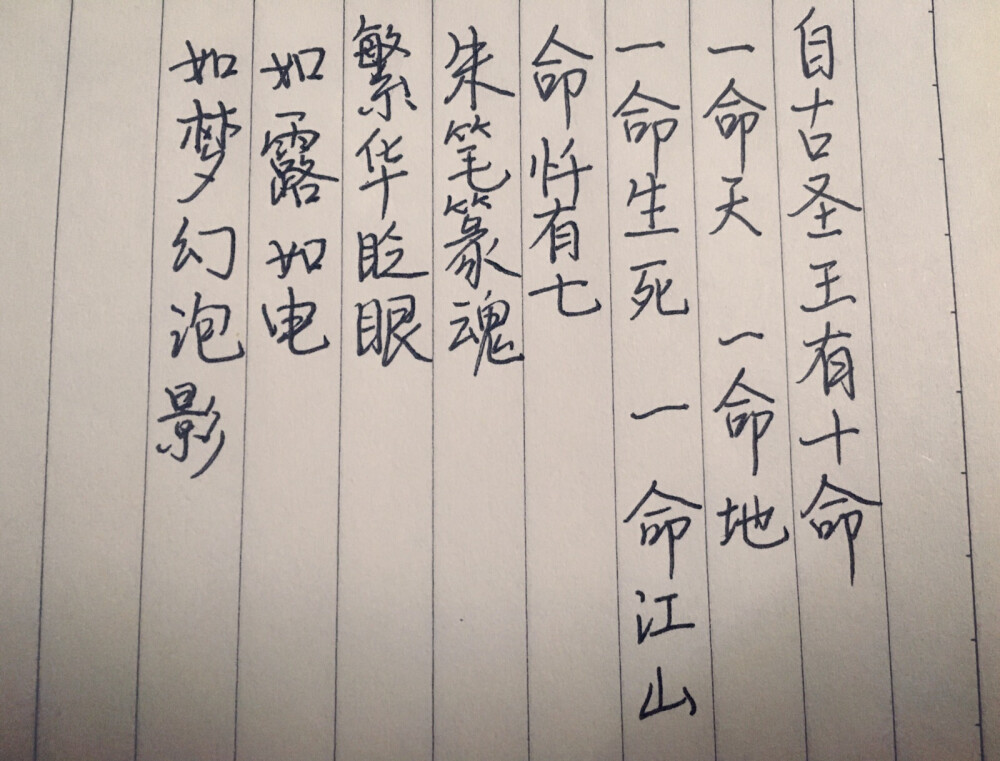 自古圣王有十命
一命天 一命地
一命生死 一命江山
命忏有七
朱笔篆魂
繁华眨眼
如露如电
如梦幻泡影